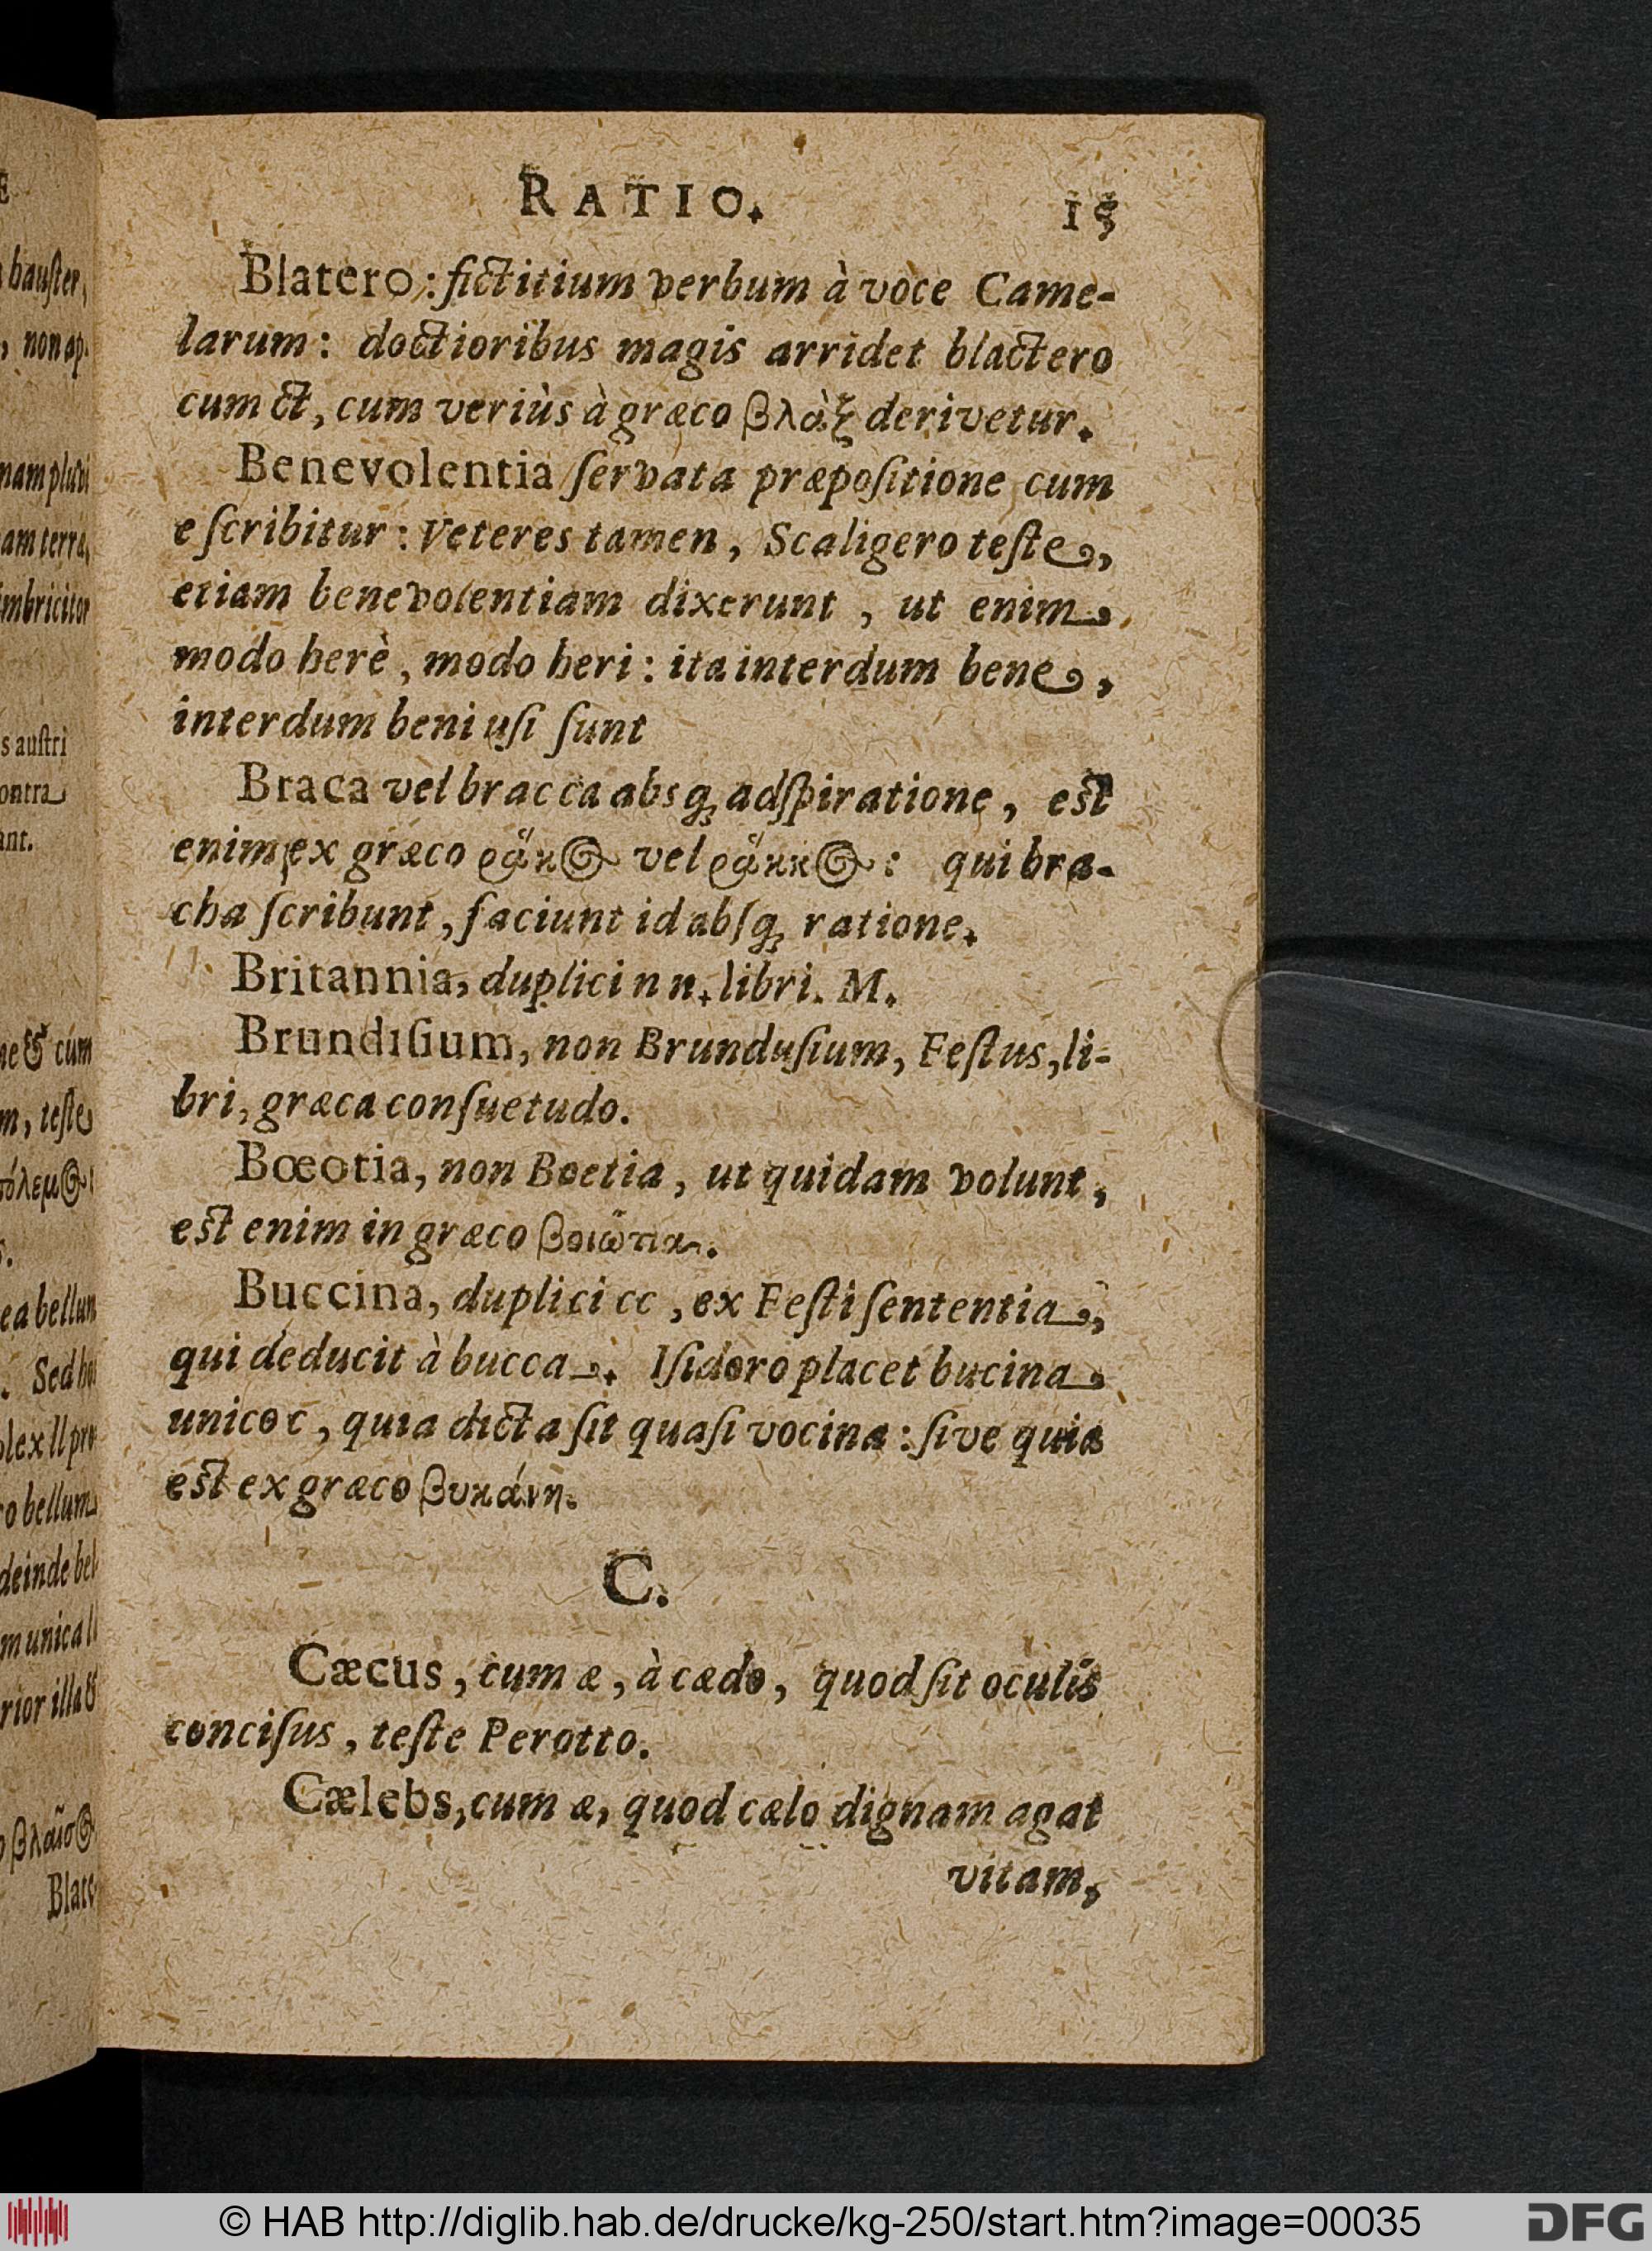 RATIO. 15
Blatero: fictitium verbum à voce Came-
larum: doctioribus magis arridet blactero
cum ct, cum veriùs à græco βλὰξ derivetur.
Benevolentia ſervata præpoſitione cum
e ſcribitur: Veteres tamen, Scaligero teſte,
etiam benevolentiam dixerunt, ut enim
modo herè, modo heri: ita interdum bene,
interdum beni uſi ſunt
Braca vel bracca absq; adſpiratione, eſt
enim ex græco ῥάκ⊙ vel ῥάκκ⊙: qui bra-
cha ſcribunt, faciunt id abſq; ratione.
Britannia, duplici n n. libri. M.
Brundiſium, non Brunduſium, Feſtus, li-
bri, græca conſuetudo.
Bœotia, non Boetia, ut quidam volunt,
eſt enim in græco βοιώτια.
Buccina, duplici cc, ex Feſti ſententia,
qui deducit à bucca. Iſidoro placet bucina
unico c, quia dicta ſit quaſi vocina: ſive quia
eſt ex græco βυκάνη.
C.
Cæcus, cum æ, à cædo, quod ſit oculis
conciſus, teſte Perotto.
Cælebs, cum æ, quod cælo dignam agat
vitam,
© HAB http://diglib.hab.de/drucke/kg-250/start.htm?image=00035
DFG